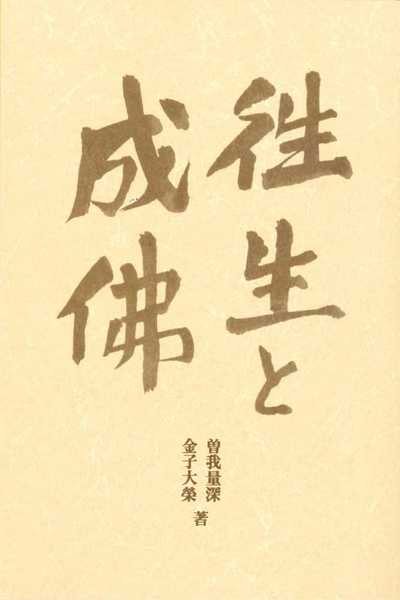 徃生と
成佛
曽我量深
金子大榮 著